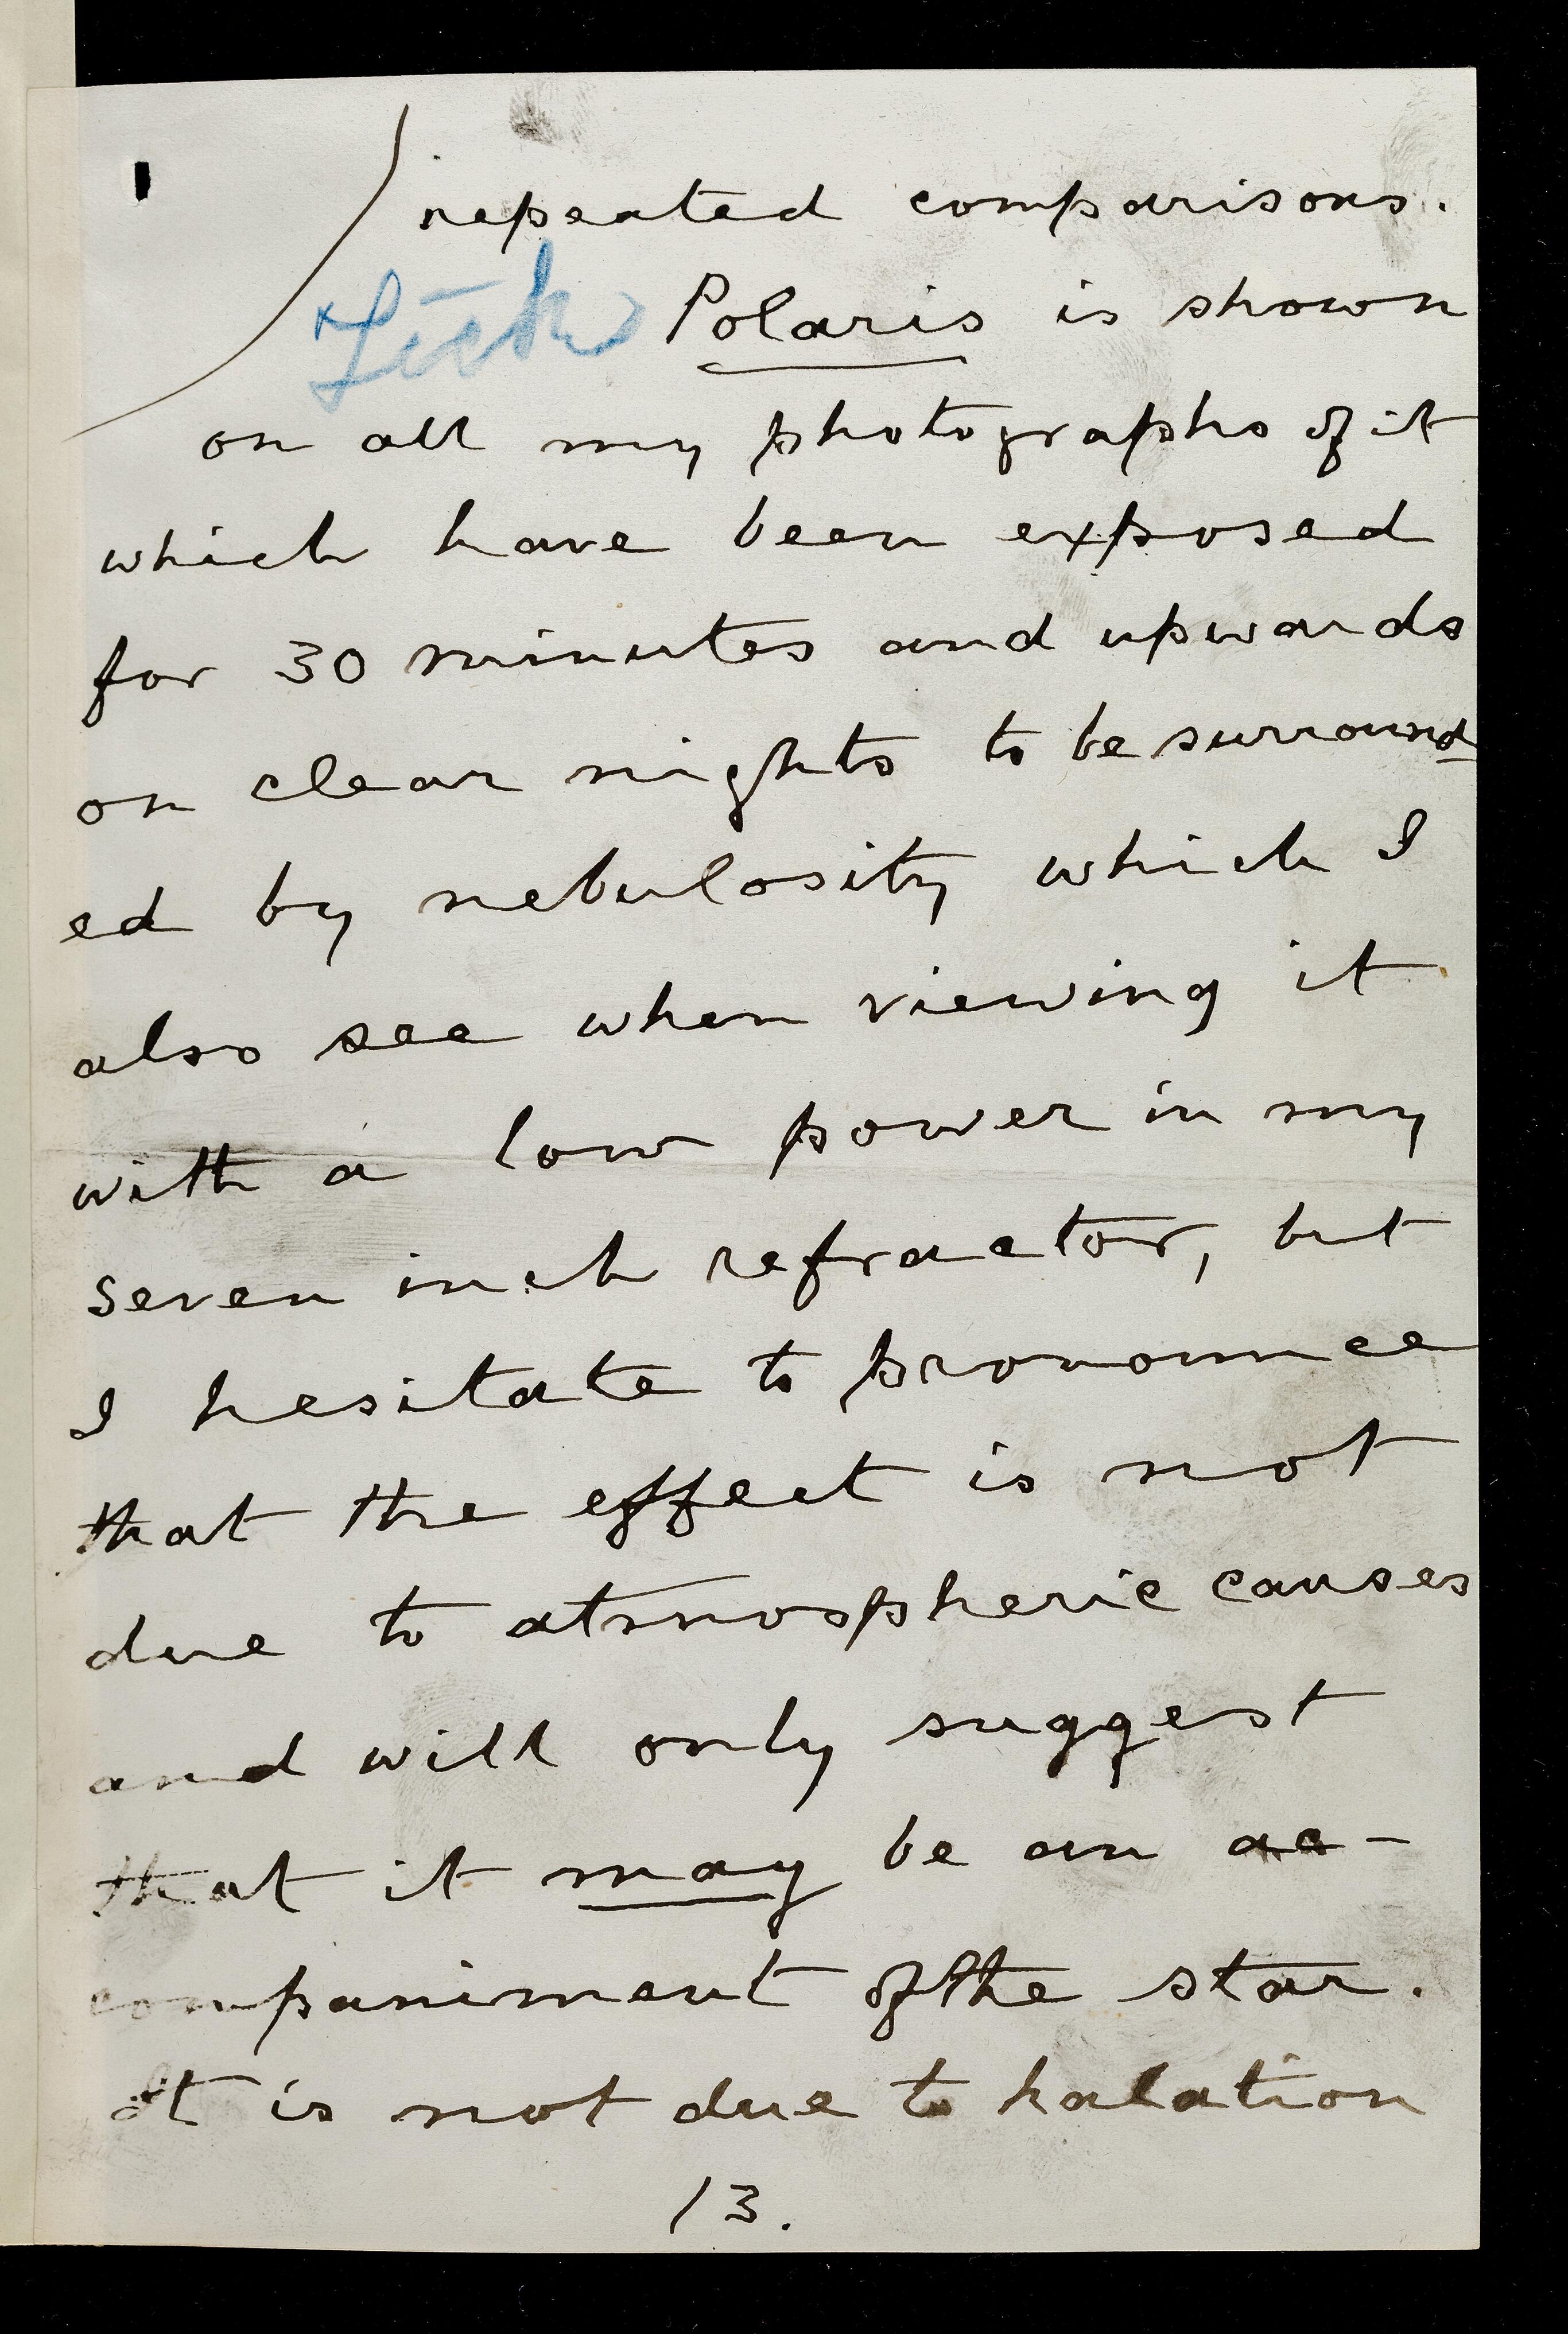 repeated comparisons.
Polaris is shown
on all my photographs of it
which have been exposed
for 30 minutes and upwards
on clear nights to be surround-
ed by nebulosity which I
also see when viewing it
with a low power in my
seven inch refractor, but
I hesitate to pronounce
that the effect is not
due to atmospheric causes
and will only suggest
that it may be an ac-
companiment of the star.
It is not due to halation
13.